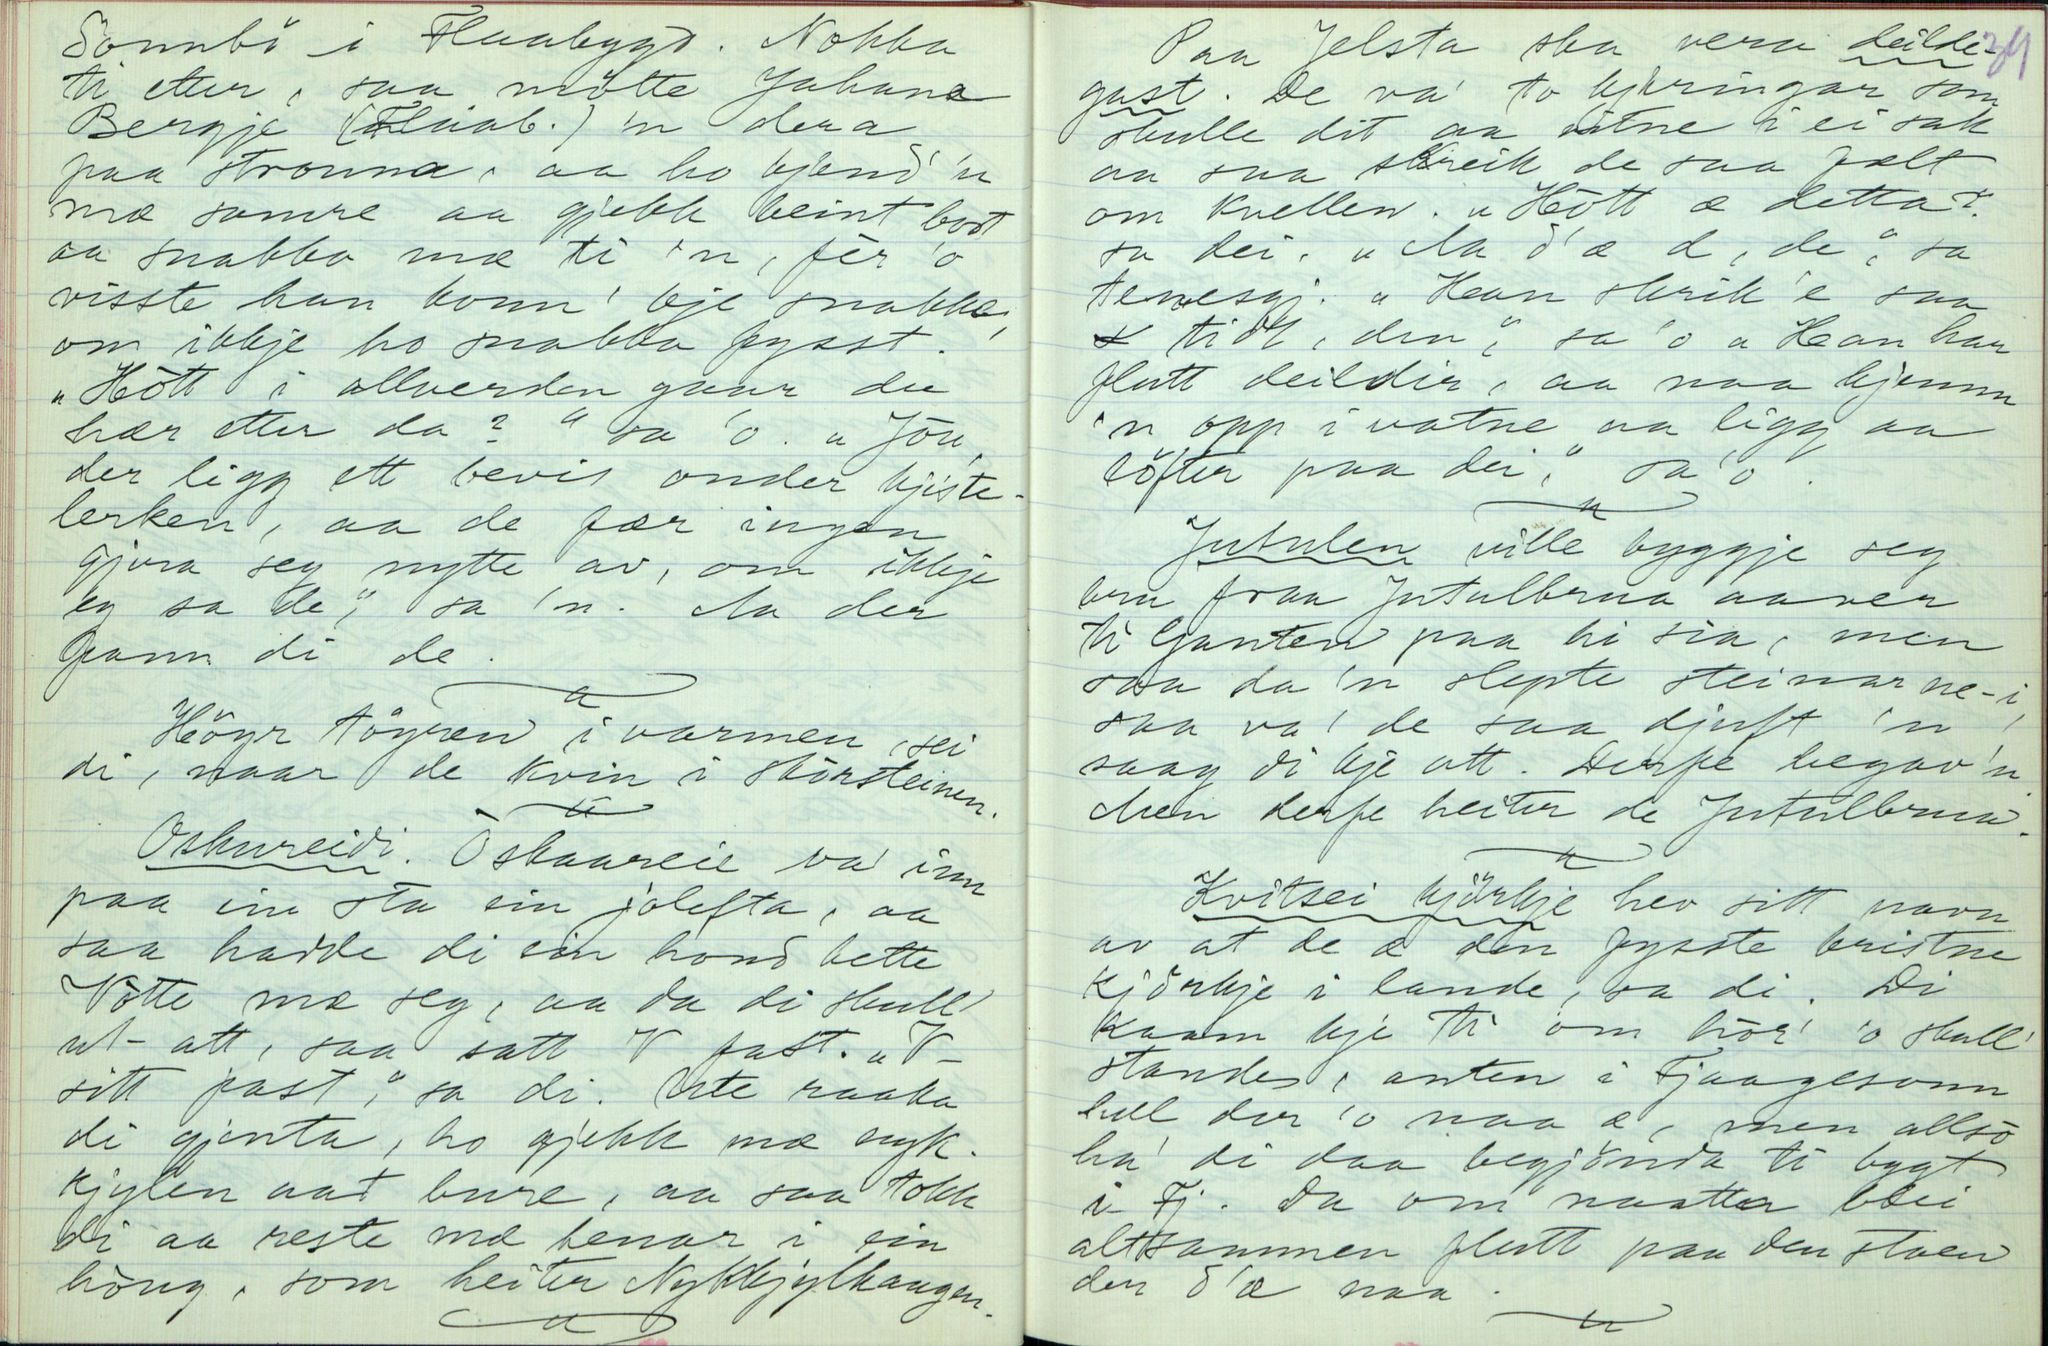 Sonnbö i Flaabygd. Nokka
ti etter, saa mötte Johana
Bergje (Flaab.) 'n dera
paa stronna, aa ho kjend' 'n
mæ somre aa gjekk beint bort
aa snakka mæ ti 'n, fèr 'o
visste han konn' kje snakke,
om ikkje ho snakka fysst.
"Hött i allverden gaar du
hær etter da?" sa 'o. "Jou,
der ligg ett bevis onder kjiste-
lerken, aa de fær ingen
gjera seg nytte av, om ikkje
eg sa de," sa 'n. Aa der
fann di de.
Höyr töyren i varmen, sei
di, naar de kvin i skòrsteinen.
Oskureidi. Òskaareie va' inn
paa ein sta ein jolefta, aa
saa hadde di ein hond hette
Vòtte mæ seg, aa da di skull'
ut- att, saa satt V fast. "V-
sitt fast," sa di. Ute raaka
di gjenta, ho gjekk mæ nyk-
kjylen aat bure, aa saa tokk
di aa reste mæ henar i ein
hòug, som heiter Nykkjylhaugen.
39
Paa Jelsta ska vera deilde-
gast. De va' to kjeringar som
skulle dit aa vitne i ei sak
aa saa skreik de saa fælt
om kvellen. "Hött æ detta?"
sa dei. "Aa d'æ d, de", sa
tenesgj. "Han skrik'e saa
tidt, den", sa 'o "Han har
flutt deildir, aa naa kjemm
'n opp i vatne aa ligg aa
löfter paa dei," sa 'o.
Jutulen ville byggje seg
bru fraa Jutulbrua aaver
ti Ganten paa hi sia, men
saa da 'n slepte steinar ne-i,
saa va' de saa djuft 'n
saag di kje att. Derfe begav 'n
Men derfe heiter de Jutulbrua.
Kvitsei kjörkje hev sitt navn
av at de æ den fysste kristne
kjörkje i lande, sa di. Di
kaam kje ti 'om hòr' 'o skull'
standes, anten i Fjaagesonn
hell der 'o naa æ, men allsò
ha' di daa begjönda ti bygt
i Fj. Da om naatta blei
altsammen flutt paa den staen
der d'æ naa.